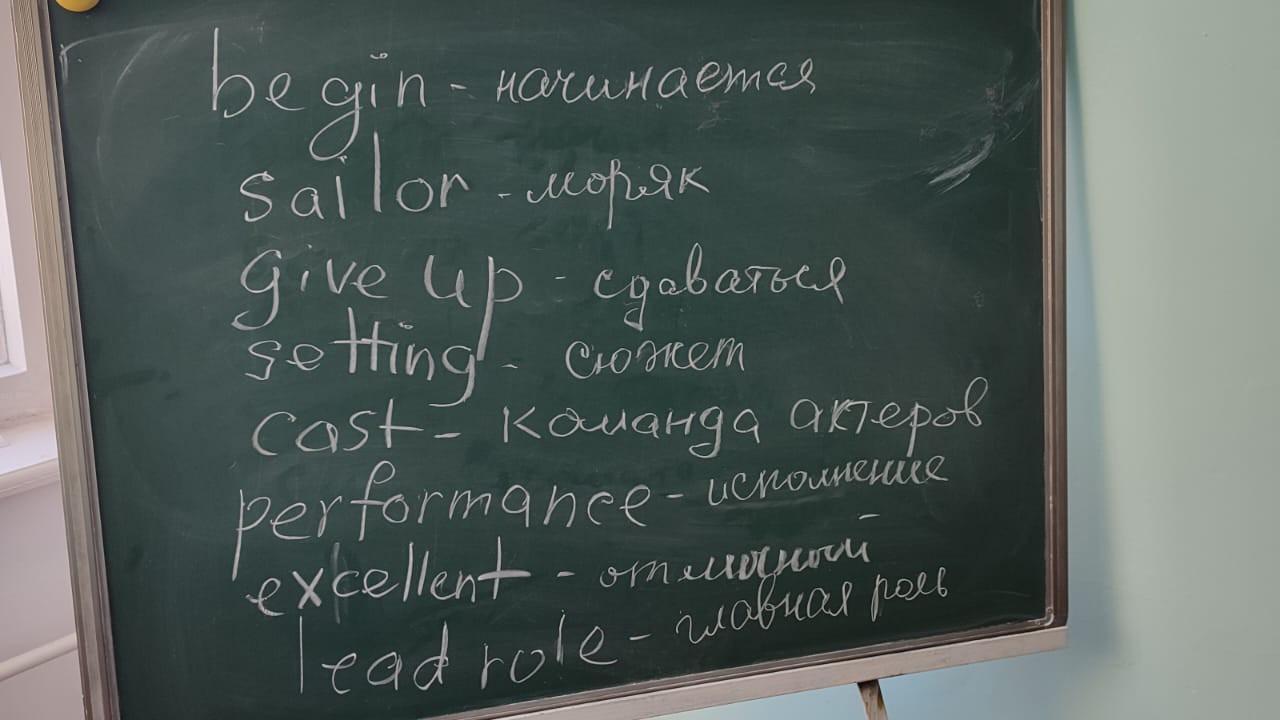 begin - начинается
sailor - моряк
give up - сдаваться
setting - сюжет
cast - команда актеров
performance - исполнение
excellent - отличный
lead role - главная роль